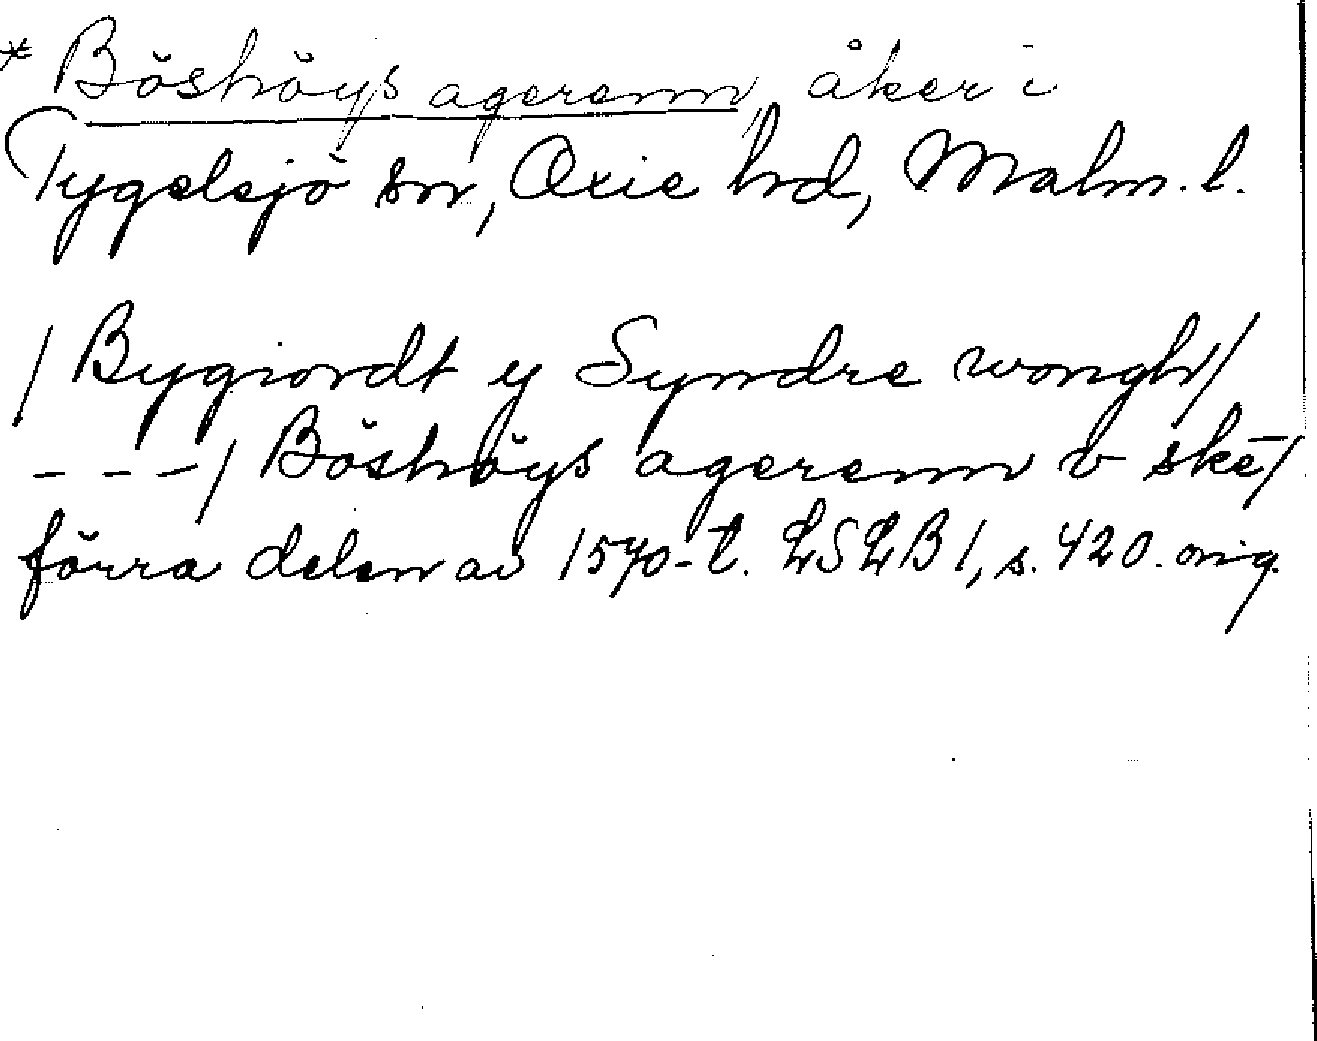 * Böshöys agerenn, åker i
Tygelsjö sn, Oxie hd, Malm. l.
/ Bygiordt y Syndre wongh/
- - -/ Böshöys agerenn v ske/
förra delen av 1570-t. LSLB 1, s. 420. orig.